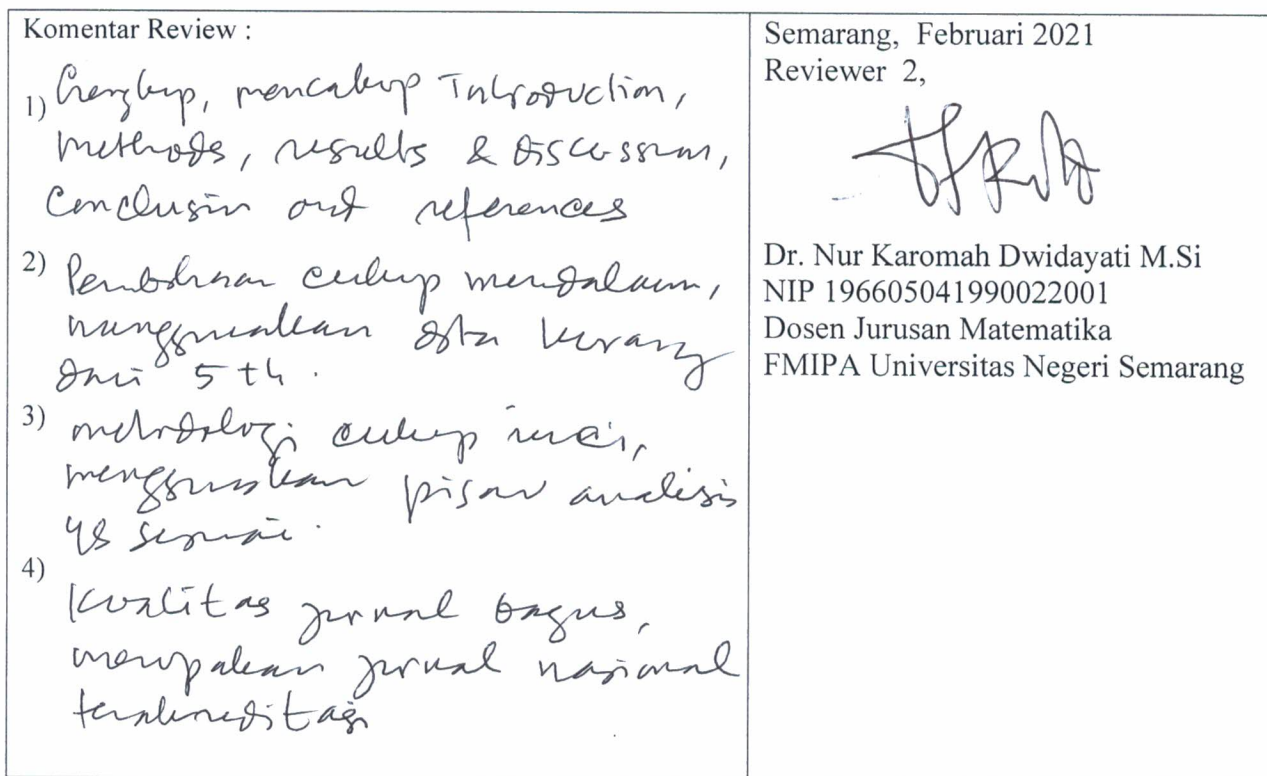 Komentar Review :
1) Lengkap, mencakup Introduction,
methods, results & discussion,
Conclusion and references
2) Pembahasan cukup mendalam,
menggunakan data kurang
dari 5 th.
3) metodologi cukup rinci,
menggunakan pisau analisis
yg sesuai.
4)
Kualitas jurnal bagus,
merupakan jurnal nasional
terakreditasi
Semarang, Februari 2021
Reviewer 2,
Dr. Nur Karomah Dwidayati M.Si
NIP 196605041990022001
Dosen Jurusan Matematika
FMIPA Universitas Negeri Semarang